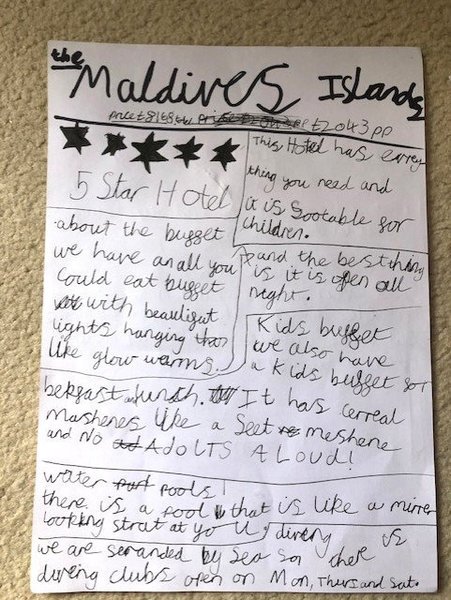 the
Maldives Islands
price £8168 tw £2043 pp
5 Star Hotel
This Hotel has evrey
thing you need and
it is Sootable for
children.
about the buffet
we have an all you
Could eat buffet
with beautifut
lights hanging
like glow warms.
and the best thing
is it is open all
night.
Kids buffet
we also have
a Kids buffet for
bekfast and lunch. It has cerreal
mashenes like a Seet meshene
and NO ADOLTS ALOUD!
water pools!
there is a pool that is like a mirrer
looking strat at yoU
diveng
we are seranded by Sea so there is
diveng clubs open on Mon, Thurs and Sat.